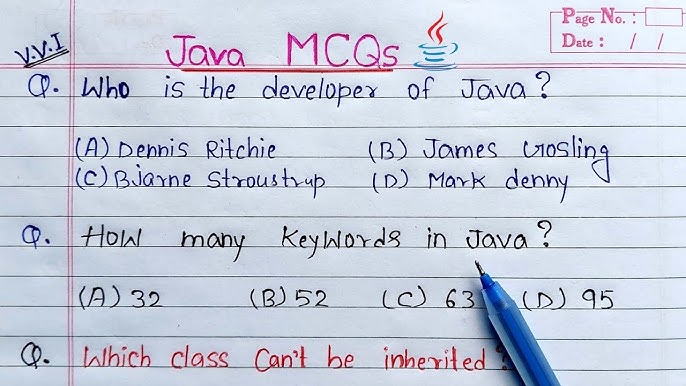 Page No. :
Date : / /
V.V.I
Java MCQs
Q. Who is the developer of Java?
(A) Dennis Ritchie (B) James Gosling
(C) Bjarne Stroustrup (D) Mark denny
Q. How many keywords in Java?
(A) 32 (B) 52 (C) 63 (D) 95
Q. Which class Can't be inherited?